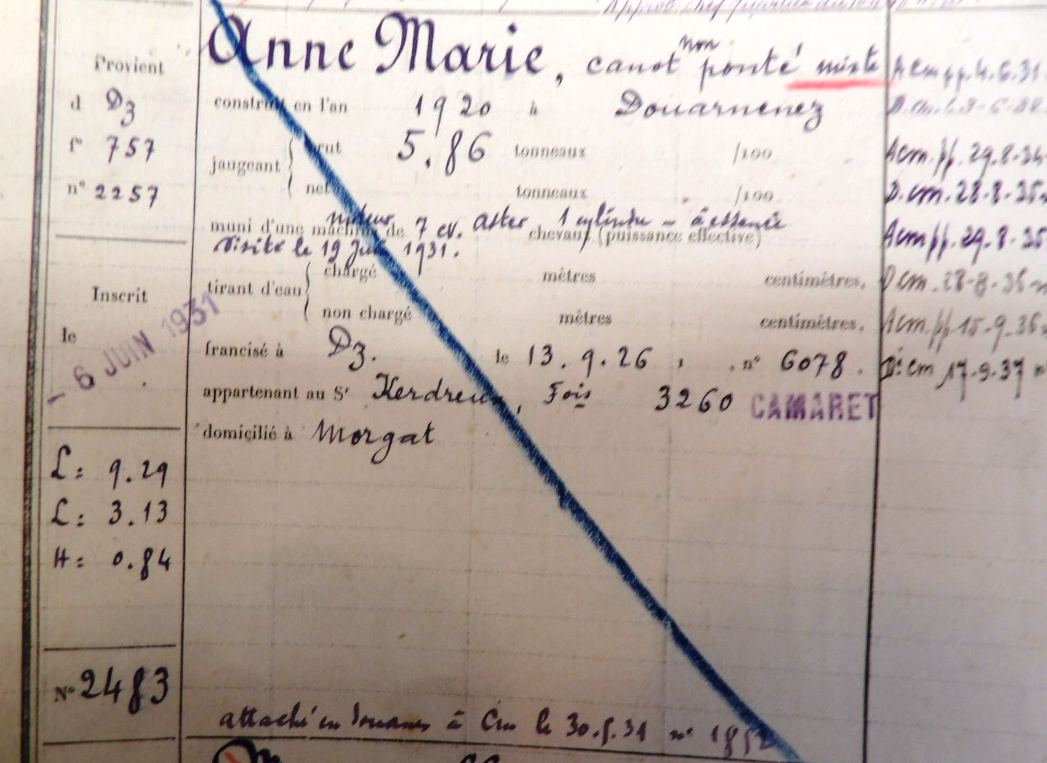 Provient
d Dz
fº 757
nº 2257
Inscrit
le
- 6 JUIN 1931
L: 9.29
L: 3.13
H: 0.84
Nº 2483
Anne Marie, canot non ponté mixte
construit en l'an 1920 à Douarnenez
jaugeant
brut 5,86 tonneaux /100
net tonneaux /100
moteur
muni d'une machine de 7 cv. Aster, 1 cylindre - à essence
chevaux (puissance effective)
Visite le 19 1931.
tirant d'eau
chargé mètres centimètres.
non chargé mètres centimètres.
francisé à Dz. le 13.9.26, nº 6078.
appartenant au Sr, Fois 3260 CAMARET
domicilié à Morgat
attaché en Douanes à Cm le 30.5.31 nº
Acm pp. 4.6.31
Acm. pp. 29.8.34
D. cm. 28-8-35
Acm pp. 29.8.35
D cm. 28-8-36
Acm. pp 15-9.36
D: cm 17-9-37